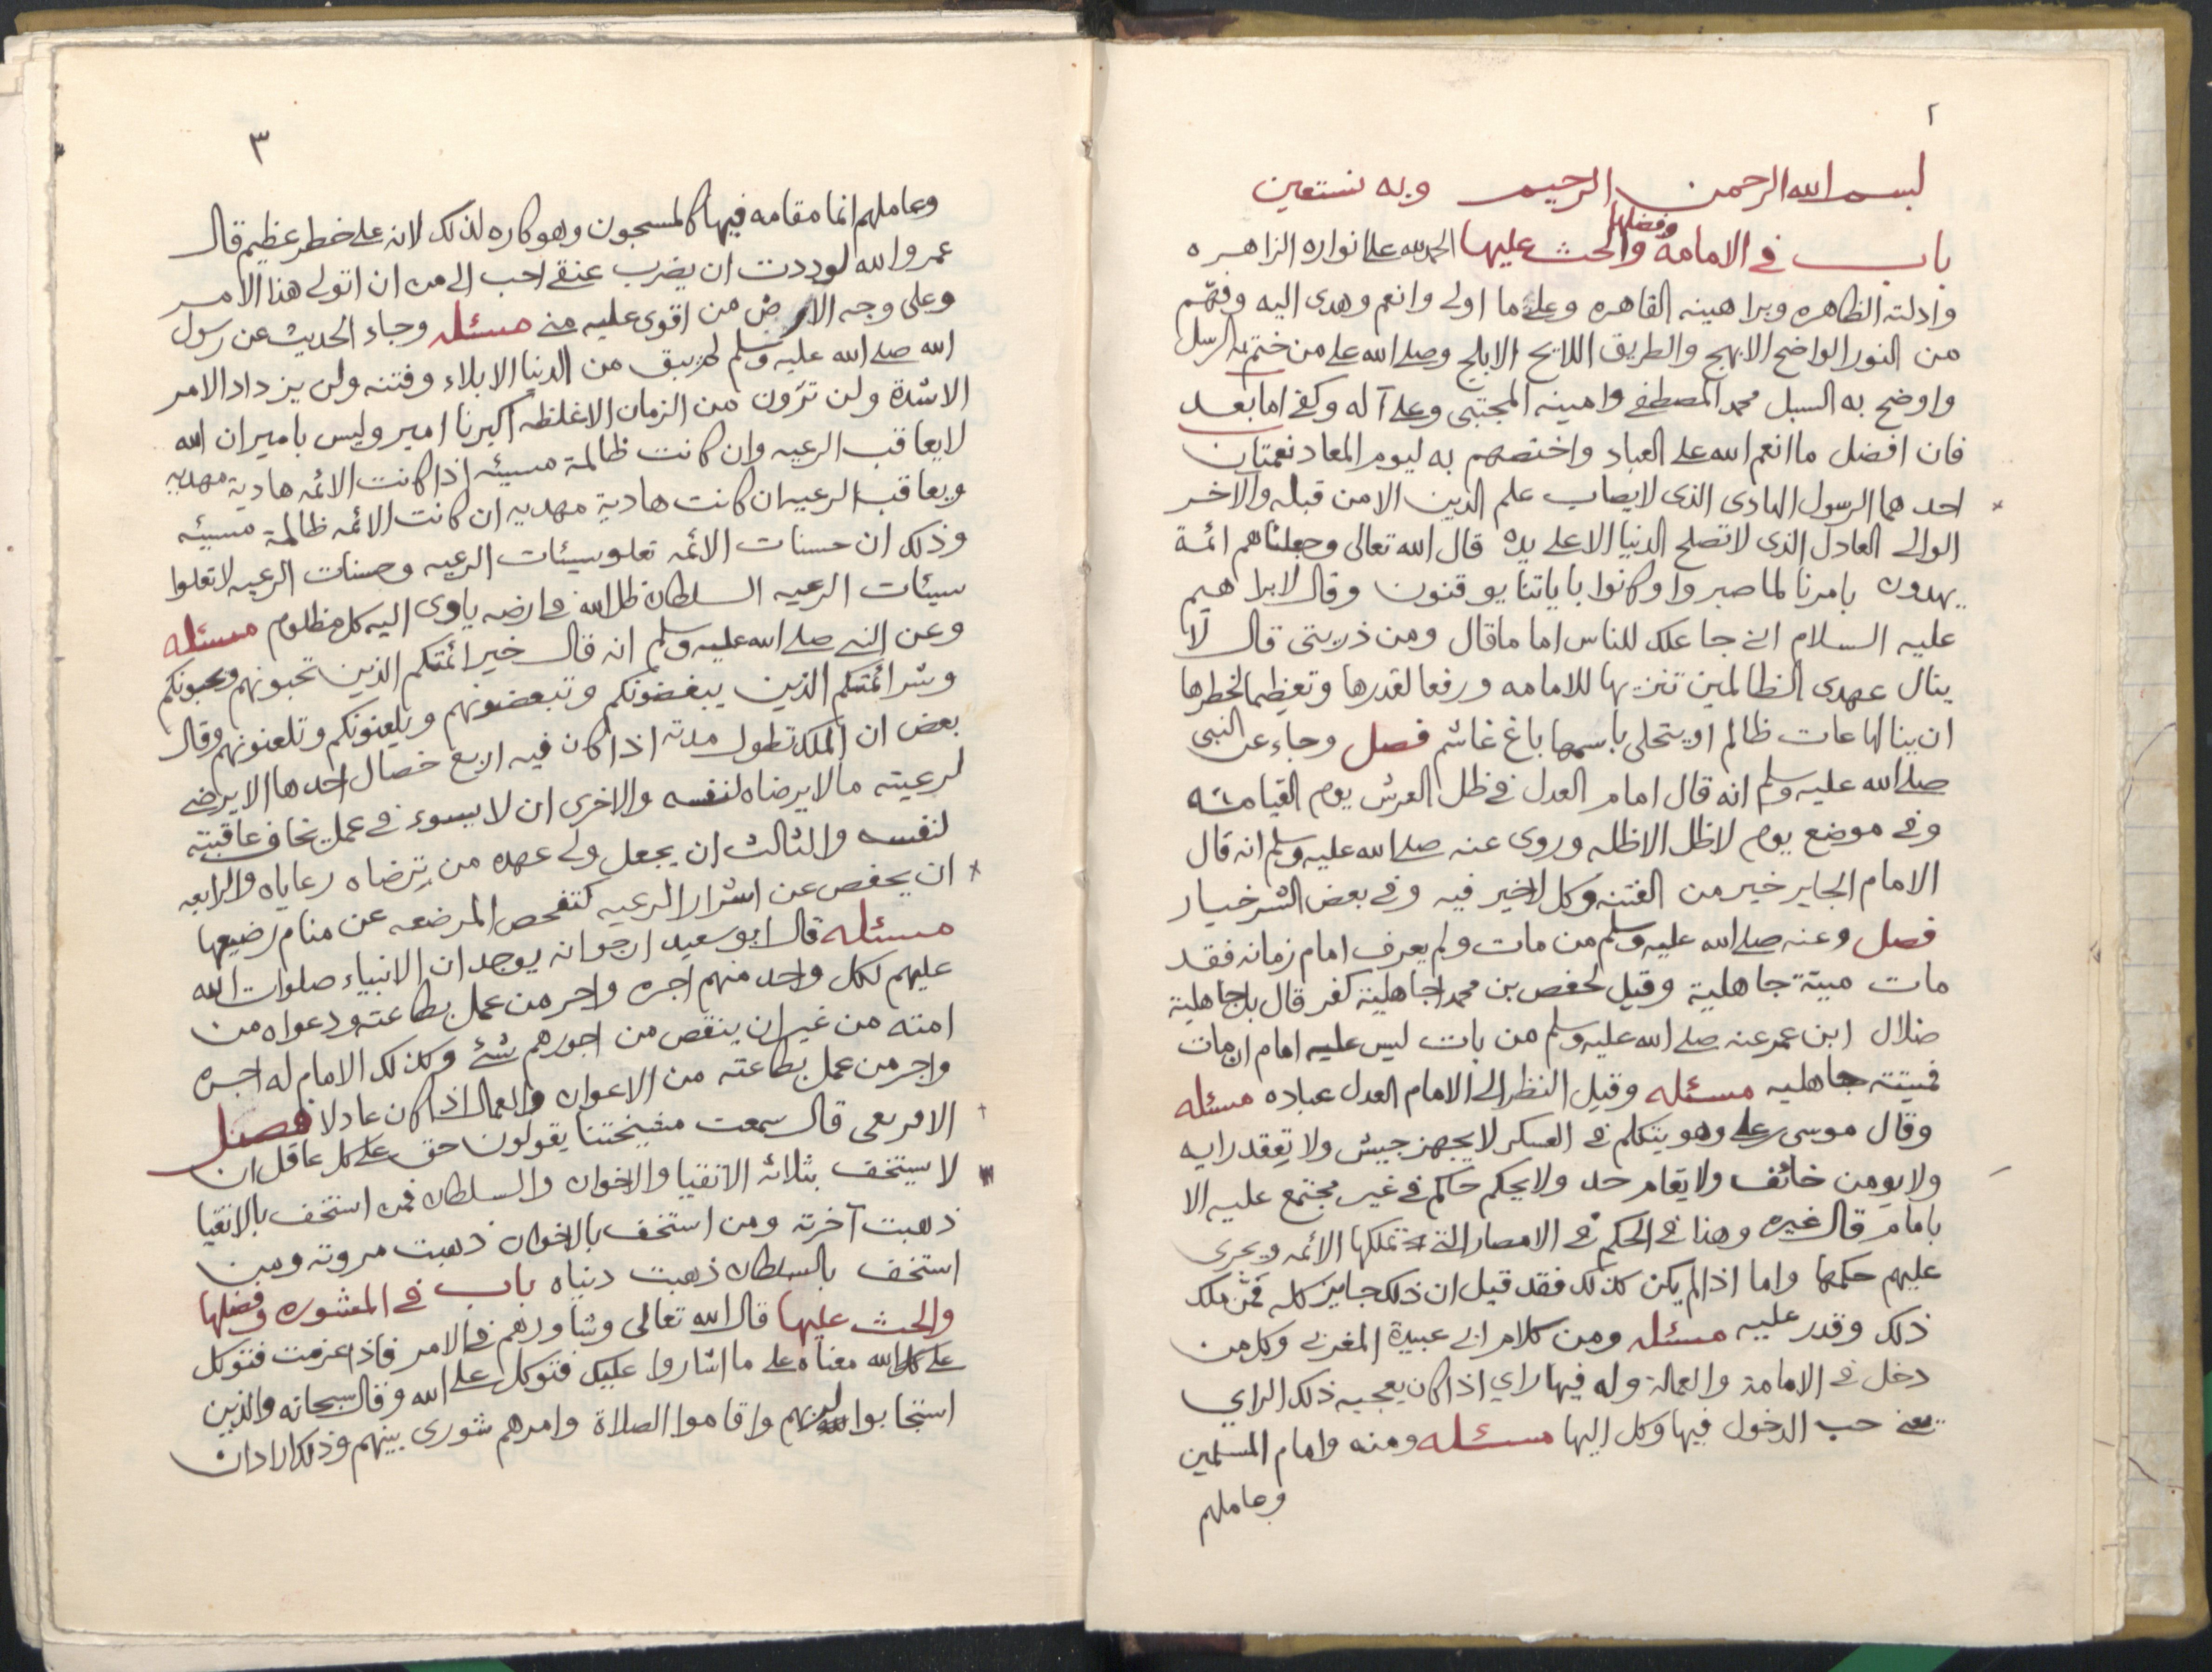 ٢
بسم الله الرحمن الرحيم وبه نستعين
باب في الامامة وفضلها والحث عليها الحمد لله على انواره الزاهره
وادلته الظاهره وبراهينه القاهره وعلى ما اولى وانعم وهدى اليه وفهّم
من النور الواضح الابهج والطريق اللايح الابلج وصلى الله على من ختم به الرسل
واوضح به السبل محمد المصطفى وامينه المجتبى وعلى آله وكفى اما بعد
فان افضل ما انعم الله على العباد واختصهم به ليوم المعاد نعمتان
احدهما الرسول الهادى الذى لايصاب علم الدين الا من قبله والآخر
الوالى العادل الذى لاتصلح الدنيا الا على يده قال الله تعالى وجعلناهم ائمة
يهدون بامرنا لما صبروا وكانوا باياتنا يوقنون وقال لابراهيم
عليه السلام اني جاعلك للناس اماما قال ومن ذريتى قال لا
ينال عهدى الظالمين تنزيها للامامه ورفعا لقدرها وتعظيما لخطرها
ان ينالها عات ظالم او يتحلى باسمها باغ غاشم فصل وجاء عن النبى
صلى الله عليه وسلم انه قال امام العدل في ظل العرش يوم القيامة
وفي موضع يوم لاظل الا ظله وروى عنه صلى الله عليه وسلم انه قال
الامام الجاير خير من الفتنه وكل لاخير فيه وفي بعض الشر خيار
فصل وعنه صلى الله عليه وسلم من مات ولم يعرف امام زمانه فقد
مات ميتة جاهلية وقيل لحفص بن محمد اجاهلية كفر قال بل جاهلية
ضلال ابن عمر عنه صلى الله عليه وسلم من بات ليس عليه امام ان مات
فميتته جاهليه مسئله وقيل النظر الى الامام العدل عباده مسئله
وقال موسى بن على وهو يتكلم في العسكر لايجهز جيش ولا تعقد رايه
ولا يومن خائف ولا يقام حد ولا يحكم حاكم في غير مجتمع عليه الا
بامام قال غيره وهذا في الحكم في الامصار التى تملكها الائمه ويجرى
عليهم حكمها واما اذا لم يكن كذلك فقد قيل ان ذلك جايز كله فمن ملك
ذلك وقدر عليه مسئله ومن كلام ابى عبيدة المغربى وكل من
دخل في الامامة والعمالة وله فيها راي اذا كان يعجبه ذلك الراي
يعنى حب الدخول فيها وكل اليها مسئله ومنه وامام المسلمين
وعاملهم
٣
وعاملهم انما مقامه فيها كالمسجون وهو كاره لذلك لانه على خطر عظيم قال
عمر والله لوددت ان يضرب عنقى احب الى من ان اتولى هذا الامر
وعلى وجه الارض من اقوى عليه منى مسئله وجاء الحديث عن رسول
الله صلى الله عليه وسلم لم يبق من الدنيا الا بلاء وفتنه ولن يزداد الامر
الا شدة ولن ترون من الزمان الا غلظه اكبرنا امير وليس بامير ان الله
لا يعاقب الرعيه وان كانت ظالمة مسيئه اذا كانت الائمه هادية مهديه
ويعاقب الرعيه ان كانت هادية مهديه ان كانت الائمه ظالمة مسيئه
وذلك ان حسنات الائمه تعلو سيئات الرعيه وحسنات الرعيه لاتعلوا
سيئات الرعيه السلطان ظل الله في ارضه ياوى اليه كل مظلوم مسئله
وعن النبى صلى الله عليه وسلم انه قال خير ائمتكم الذين تحبونهم ويحبونكم
وشر ائمتكم الذين يبغضونكم وتبغضونهم ويلعنونكم وتلعنونهم وقال
بعض ان الملك تطول مدته اذا كان فيه اربع خصال احدها الا يرضى
لرعيته ما لا يرضاه لنفسه والاخرى ان لا يسوء في عمل يخاف عاقبته
لنفسه والثالث ان يجعل ولى عهده من ترضاه رعاياه والرابعه
ان يحفص عن اشرار الرعيه كتفحص المرضعه عن منام رضيعها
مسئله قال ابو سعيد ارجوا انه يوجد ان الانبياء صلوات الله
عليهم لكل واحد منهم اجره واجر من عمل بطاعته ودعواه من
امته من غير ان ينقص من اجورهم شئ وكذلك الامام له اجره
واجر من عمل بطاعته من الاعوان والعمال اذا كان عادلا فصل
الامر يعى قال سمعت مشيختنا يقولون حق على كل عاقل ان
لا يستخف بثلاثه الاتقيا والاخوان والسلطان فمن استخف بالاتقيا
ذهبت آخرته ومن استخف بالاخوان ذهبت مروته ومن
استخف بالسلطان ذهبت دنياه باب في المشوره وفضلها
والحث عليها قال الله تعالى وشاورهم في الامر فاذا عزمت فتوكل
على الله معناه على ما اشاروا عليك فتوكل على الله وقال سبحانه والذين
استجابوا لربهم واقاموا الصلاة وامرهم شورى بينهم وذلك لا دان